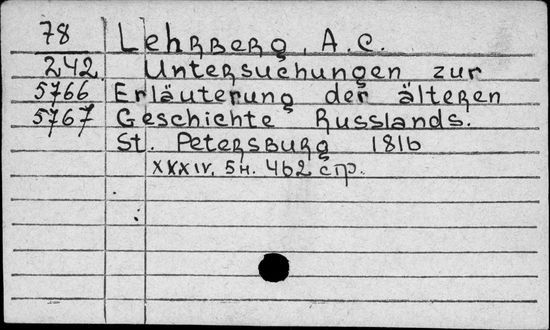 78 Lehrberg, A. C.
242 Untersuchungen zur
5766 Erläuterung der älteren
5767 Geschichte Russlands.
St. Petersburg 1816
XXXIV, 5н. 462 стр.